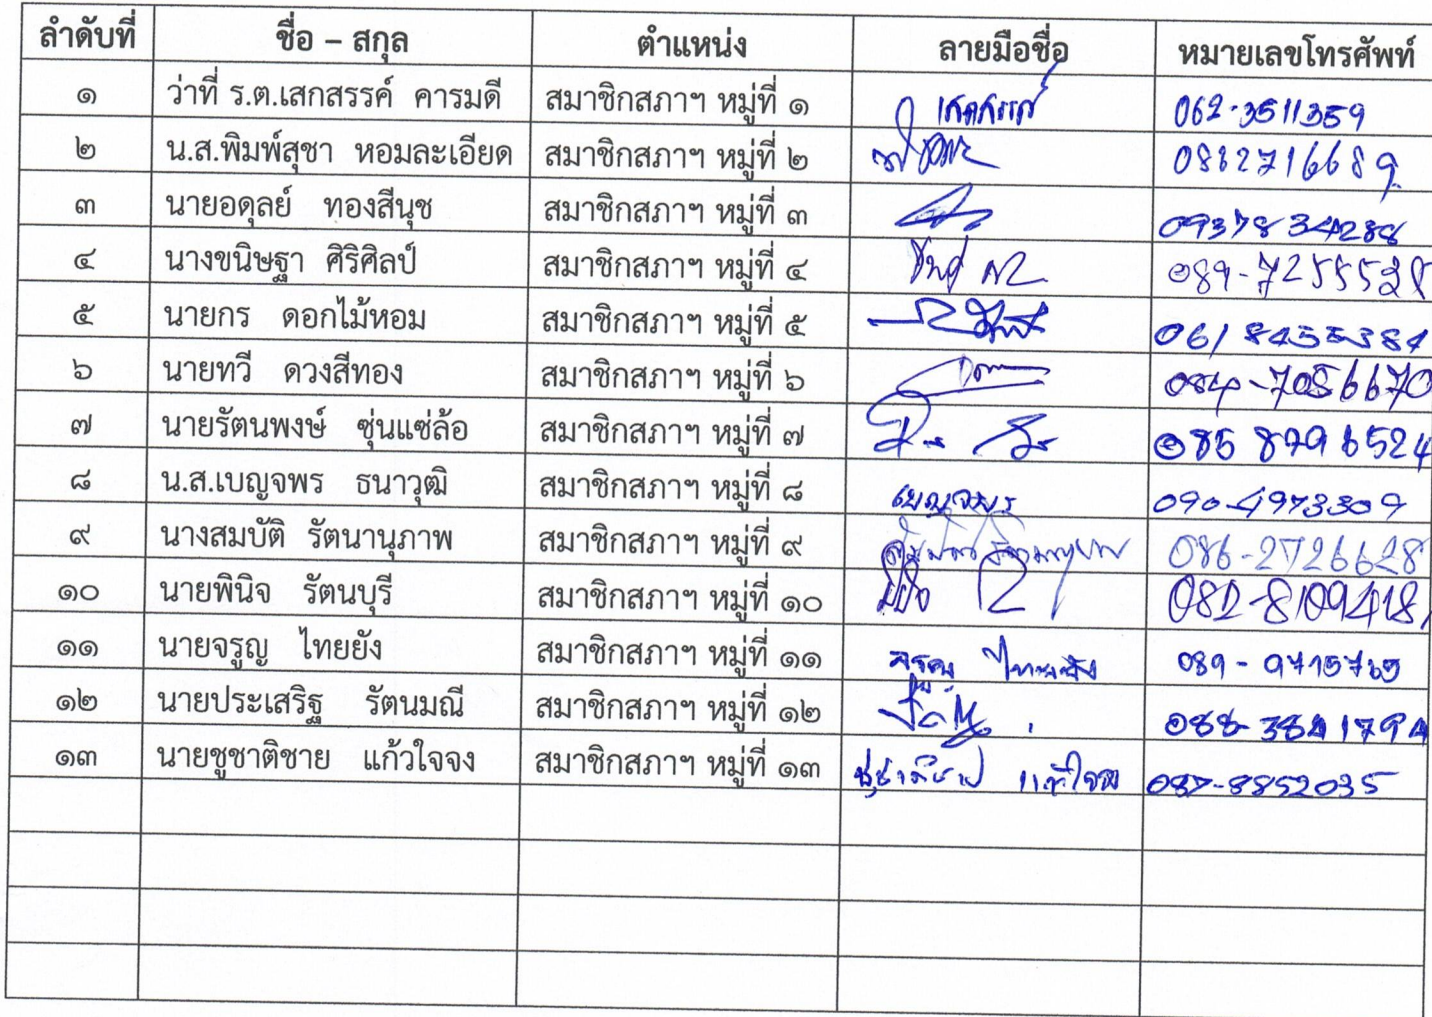 ลำดับที่ ชื่อ – สกุล ตำแหน่ง ลายมือชื่อ หมายเลขโทรศัพท์
๑ ว่าที่ ร.ต.เสกสรรค์ คารมดี สมาชิกสภาฯ หมู่ที่ ๑ เสกสรรค์ 062-3511359
๒ น.ส.พิมพ์สุชา หอมละเอียด สมาชิกสภาฯ หมู่ที่ ๒
๓ นายอดุลย์ ทองสีนุช สมาชิกสภาฯ หมู่ที่ ๓ 0937834288
๔ นางขนิษฐา ศิริศิลป์ สมาชิกสภาฯ หมู่ที่ ๔
๕ นายกร ดอกไม้หอม สมาชิกสภาฯ หมู่ที่ ๕
๖ นายทวี ดวงสีทอง สมาชิกสภาฯ หมู่ที่ ๖ 084-7056670
๗ นายรัตนพงษ์ ซุ่นแซ่ล้อ สมาชิกสภาฯ หมู่ที่ ๗ 085 8796524
๘ น.ส.เบญจพร ธนาวุฒิ สมาชิกสภาฯ หมู่ที่ ๘ เบญจพร 090-4973309
๙ นางสมบัติ รัตนานุภาพ สมาชิกสภาฯ หมู่ที่ ๙ 086-2726628
๑๐ นายพินิจ รัตนบุรี สมาชิกสภาฯ หมู่ที่ ๑๐ 082-8109418
๑๑ นายจรูญ ไทยยัง สมาชิกสภาฯ หมู่ที่ ๑๑ จรูญ ไทยยัง 089-9715765
๑๒ นายประเสริฐ รัตนมณี สมาชิกสภาฯ หมู่ที่ ๑๒ 088-3841794
๑๓ นายชูชาติชาย แก้วใจจง สมาชิกสภาฯ หมู่ที่ ๑๓ ชูชาติชาย แก้วใจจง 087-8852035